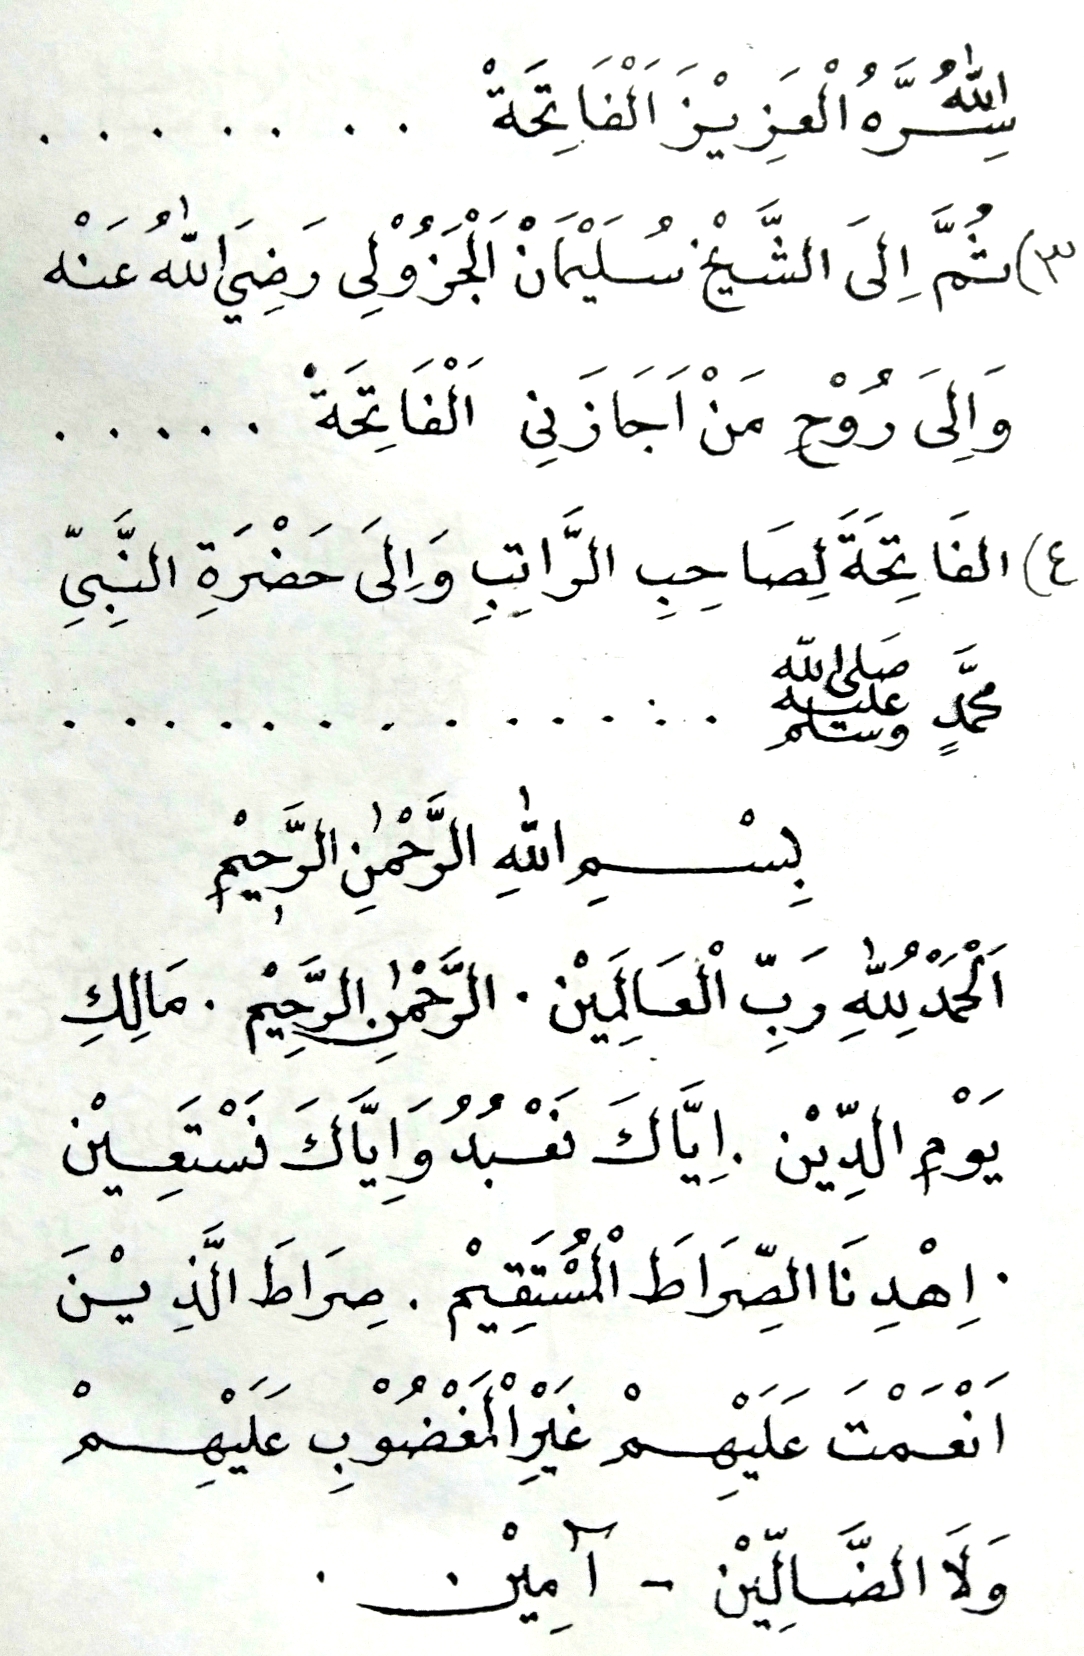 اللهُ سِرَّهُ الْعَزِيْزَ اَلْفَاتِحَةْ . . . . . . . .
٣) ثُمَّ اِلَى الشَّيْخْ سُلَيْمَانْ اَلْجَزُوْلِى رَضِيَ اللهُ عَنْه
وَاِلَى رُوْحِ مَنْ اَجَازَنِي اَلْفَاتِحَةْ . . . . .
٤) الفَاتِحَةَ لِصَاحِبِ الرَّاتِبِ وَاِلَى حَضْرَةِ النَّبِيِّ
مُحَمَّدٍ صلى الله عليه وسلم . . . . . . . . . . . .
بِسْمِ اللهِ الرَّحْمٰنِ الرَّحِيْمِ
اَلْحَمْدُ لِلّٰهِ رَبِّ الْعَالَمِيْنْ . الرَّحْمٰنِ الرَّحِيْمْ . مَالِكِ
يَوْمِ الدِّيْنْ . اِيَّاكَ نَعْبُدُ وَاِيَّاكَ نَسْتَعِيْنْ
. اِهْدِنَا الصِّرَاطَ الْمُسْتَقِيْمْ . صِرَاطَ الَّذِيْنَ
اَنْعَمْتَ عَلَيْهِمْ غَيْرِ الْمَغْضُوْبِ عَلَيْهِمْ
وَلَا الضَّالِّيْنْ - آمِيْنْ .